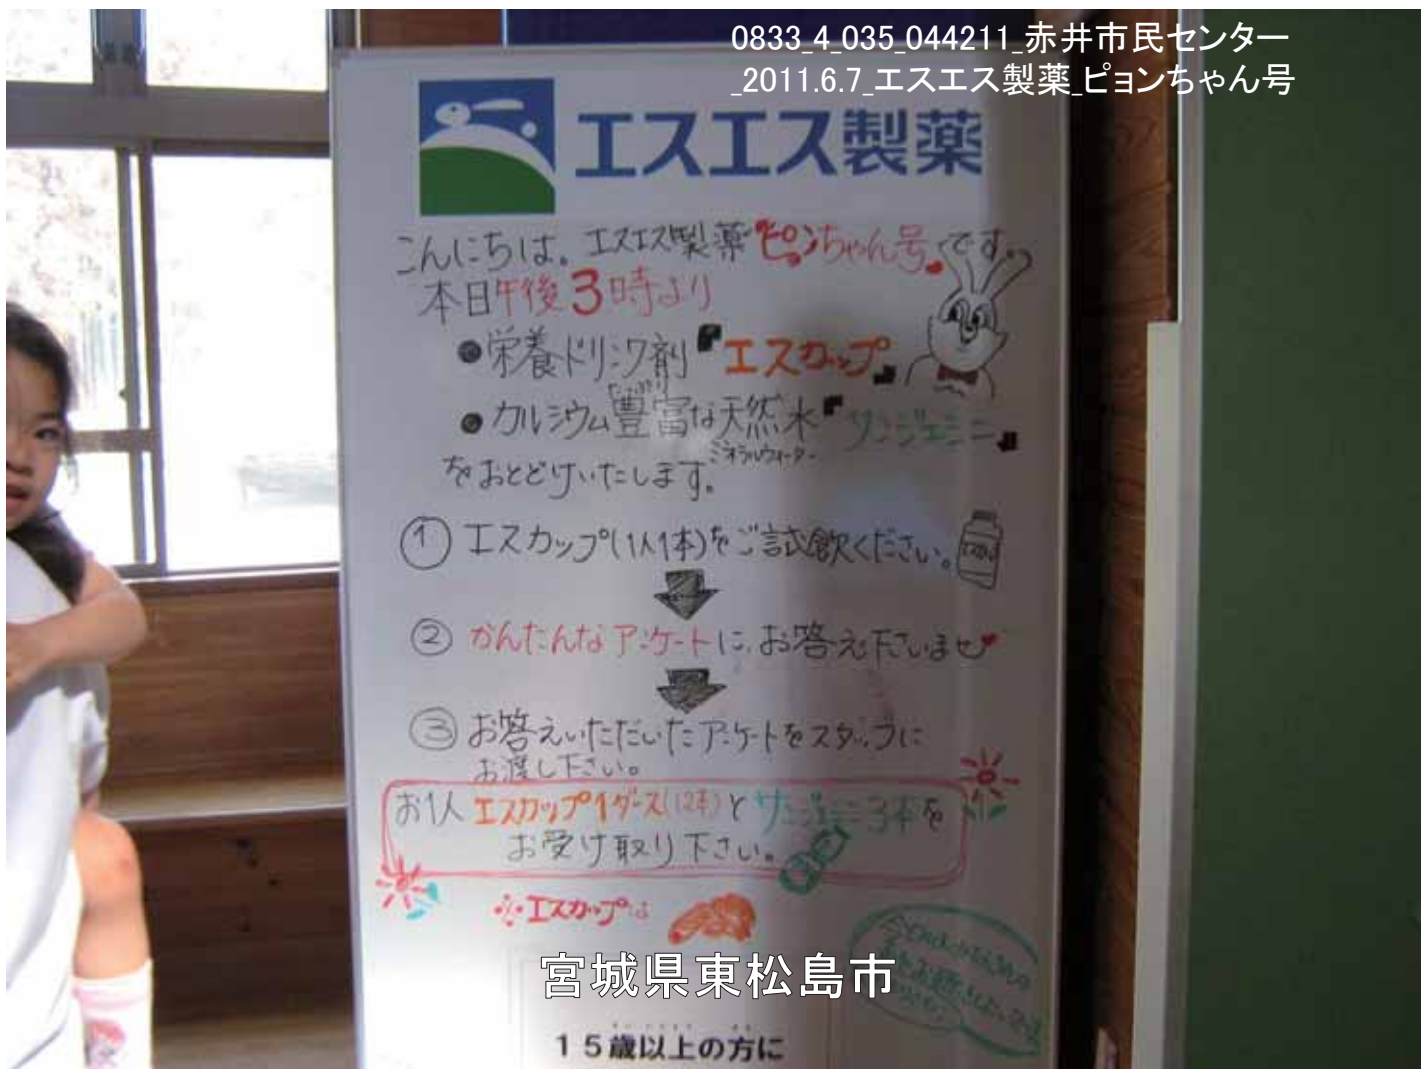 0833_4_035_044211_赤井市民センター
_2011.6.7_エスエス製薬_ピョンちゃん号
エスエス製薬
こんにちは。エスエス製薬ピョンちゃん号です。
本日午後3時より
●栄養ドリンク剤『エスカップ』
たっぷり
●カルシウム豊富な天然水『サンジェミニ』
ミネラルウォーター
をおとどけいたします。
① エスカップ(1人1本)をご試飲ください。
② かんたんなアンケートに、お答え下さいませ♥
③ お答えいただいたアンケートをスタッフに
お渡し下さい。
お1人 エスカップ1ダース(12本)とサンジェミニ3本を
お受け取り下さい。
※エスカップは
宮城県東松島市
15歳以上の方に